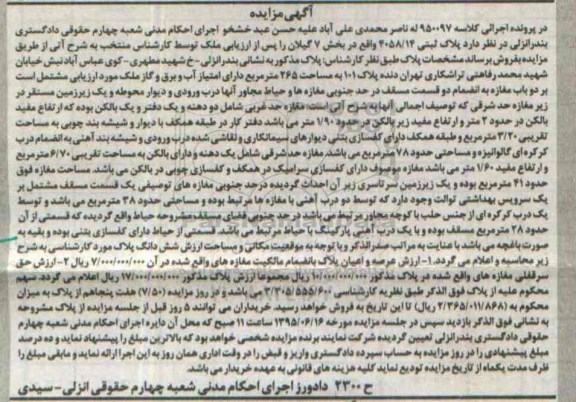 آگهی مزایده
در پرونده اجرائی کلاسه ۹۵۰۰۹۷ له ناصر محمدی علی آباد علیه حسن عبد خشخو اجرای احکام مدنی شعبه چهارم حقوقی دادگستری
بندرانزلی در نظر دارد پلاک ثبتی ۴۰۵۸/۱۴ واقع در بخش ۷ گیلان را پس از ارزیابی ملک توسط کارشناس منتخب به شرح آتی از طریق
مزایده بفروش برساند مشخصات پلاک طبق نظر کارشناس: پلاک مذکور به نشانی بندرانزلی - خ شهید مطهری - کوی عباس آباد نبش خیابان
شهید محمد رفاهتی تراشکاری تهران دنده پلاک ۱۰۱ به مساحت ۲۶۵ مترمربع دارای امتیاز آب و برق و گاز ملک مورد ارزیابی مشتمل است
بر دو باب مغازه به انضمام دو قسمت مسقف در حد جنوبی مغازه ها و حیاط مجاور آنها درب ورودی و دیوار محوطه و یک زیرزمین مستقر در
زیر مغازه حد شرقی که توصیف اجمالی آنها به شرح آتی است: مغازه حد غربی شامل دو دهنه و یک دفتر و یک بالکن بوده که ارتفاع مفید
بالکن در حدود ۲ متر و ارتفاع مفید زیر بالکن در حدود ۱/۹۰ متر می باشد دفتر کار در طبقه همکف با دیوار و شیشه بند چوبی به مساحت
تقریبی ۳/۲۰ مترمربع و طبقه همکف دارای کفسازی بتنی دیوارهای سیمانکاری و نقاشی شده درب ورودی و شیشه بند آهنی به انضمام درب
کرکره ای گالوانیزه و مساحتی حدود ۷۸ مترمربع می باشد. مغازه حد شرقی شامل یک دهنه و دارای بالکن به مساحت تقریبی ۶/۷۰ مترمربع
و ارتفاع مفید ۱/۶۰ متر می باشد مغازه موصوف دارای کفسازی سرامیک در همکف و کفسازی چوبی در بالکن می باشد. مساحت مغازه فوق
حدود ۴۱ مترمربع بوده و یک زیرزمین سرتاسری زیر آن احداث گردیده در حد جنوبی مغازه های توصیفی یک قسمت مسقف مشتمل بر
یک سرویس بهداشتی توالت وجود دارد که توسط دو درب آهنی با مغازه ها مرتبط بوده و مساحتی حدود ۳۸ مترمربع می باشد و توسط
یک درب کرکره ای از جنس حلب با کوچه مجاور مرتبط می باشد در حد جنوبی فضای مسقف مشروحه حیاط واقع گردیده که قسمتی از آن
حدود ۲۸ مترمربع مسقف بوده و با یک درب آهنی پارکینگ با حیاط مرتبط می باشد. قسمتی از حیاط دارای کفسازی بتنی بوده و بقیه به
صورت باغچه می باشد با عنایت به مراتب صدرالذکر و با توجه به موقعیت مکانی و مساحت ارزش شش دانگ پلاک مورد کارشناسی به شرح
زیر محاسبه و اعلام می گردد. ۱- ارزش عرصه و اعیان پلاک بانضمام مالکیت مغازه های واقع شده در آن ۷/۰۰۰/۰۰۰/۰۰۰ ریال ۲- ارزش حق
سرقفلی مغازه های واقع شده در پلاک مذکور ۱۰/۰۰۰/۰۰۰/۰۰۰ ریال مجموعا ارزش پلاک مذکور ۱۷/۰۰۰/۰۰۰/۰۰۰ ریال اعلام می گردد. سهم
محکوم علیه از پلاک فوق الذکر طبق نظریه کارشناسی ۳/۳۰۵/۵۵۵/۶۰۰ می باشد و در روز مزایده (۷/۵۰) هفت پنجاهم از پلاک به میزان
محکوم به (۲/۳۶۵/۰۱۱/۸۶۸ ریال) تا این تاریخ به فروش خواهد رسید. خریداران می توانند ۵ روز قبل از جلسه مزایده از پلاک مشروحه
به نشانی فوق الذکر بازدید سپس در جلسه مزایده مورخه ۱۳۹۵/۰۶/۱۶ ساعت ۱۱ صبح که محل آن دایره اجرای احکام مدنی شعبه چهارم
حقوقی دادگستری بندرانزلی تعیین گردیده شرکت نمایند برنده مزایده شخصی خواهد بود که بالاترین مبلغ را پیشنهاد نماید و ده درصد
مبلغ پیشنهادی را در روز مزایده به حساب سپرده دادگستری واریز و قبض را در وقت اداری همان روز به این اجرا ارائه نماید و مابقی مبلغ را
ظرف مدت یکماه از تاریخ مزایده تودیع نماید کلیه هزینه های قانونی به عهده خریدار می باشد.
ح ۲۳۰۰ دادورز اجرای احکام مدنی شعبه چهارم حقوقی انزلی - سیدی